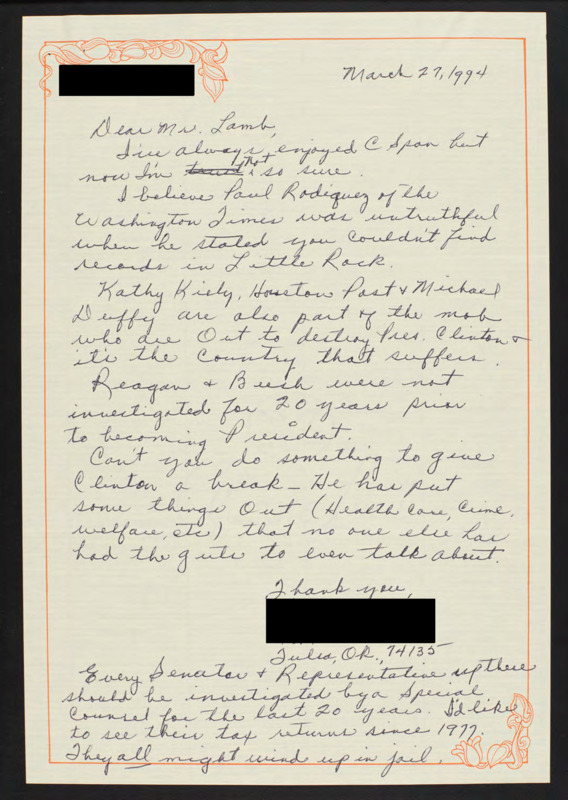 March 27, 1994
Dear Mr. Lamb,
I've always enjoyed C Span but
now I'm not so sure.
I believe Paul Rodiquez of the
Washington Times was untruthful
when he stated you couldn't find
records in Little Rock.
Kathy Kiely, Houston Post & Michael
Duffy are also part of the mob
who are Out to destroy Pres. Clinton &
it's the Country that suffers.
Reagan & Bush were not
investigated for 20 years prior
to becoming President.
Can't you do something to give
Clinton a break - He has put
some things Out (Health Care, Crime,
welfare, etc) that no one else has
had the guts to even talk about.
Thank you,
Tulsa, OK., 74135
Every Senator & Representative up there
should be investigated by a Special
Counsel for the last 20 years. I'd like
to see their tax returns since 1977.
They all might wind up in jail.